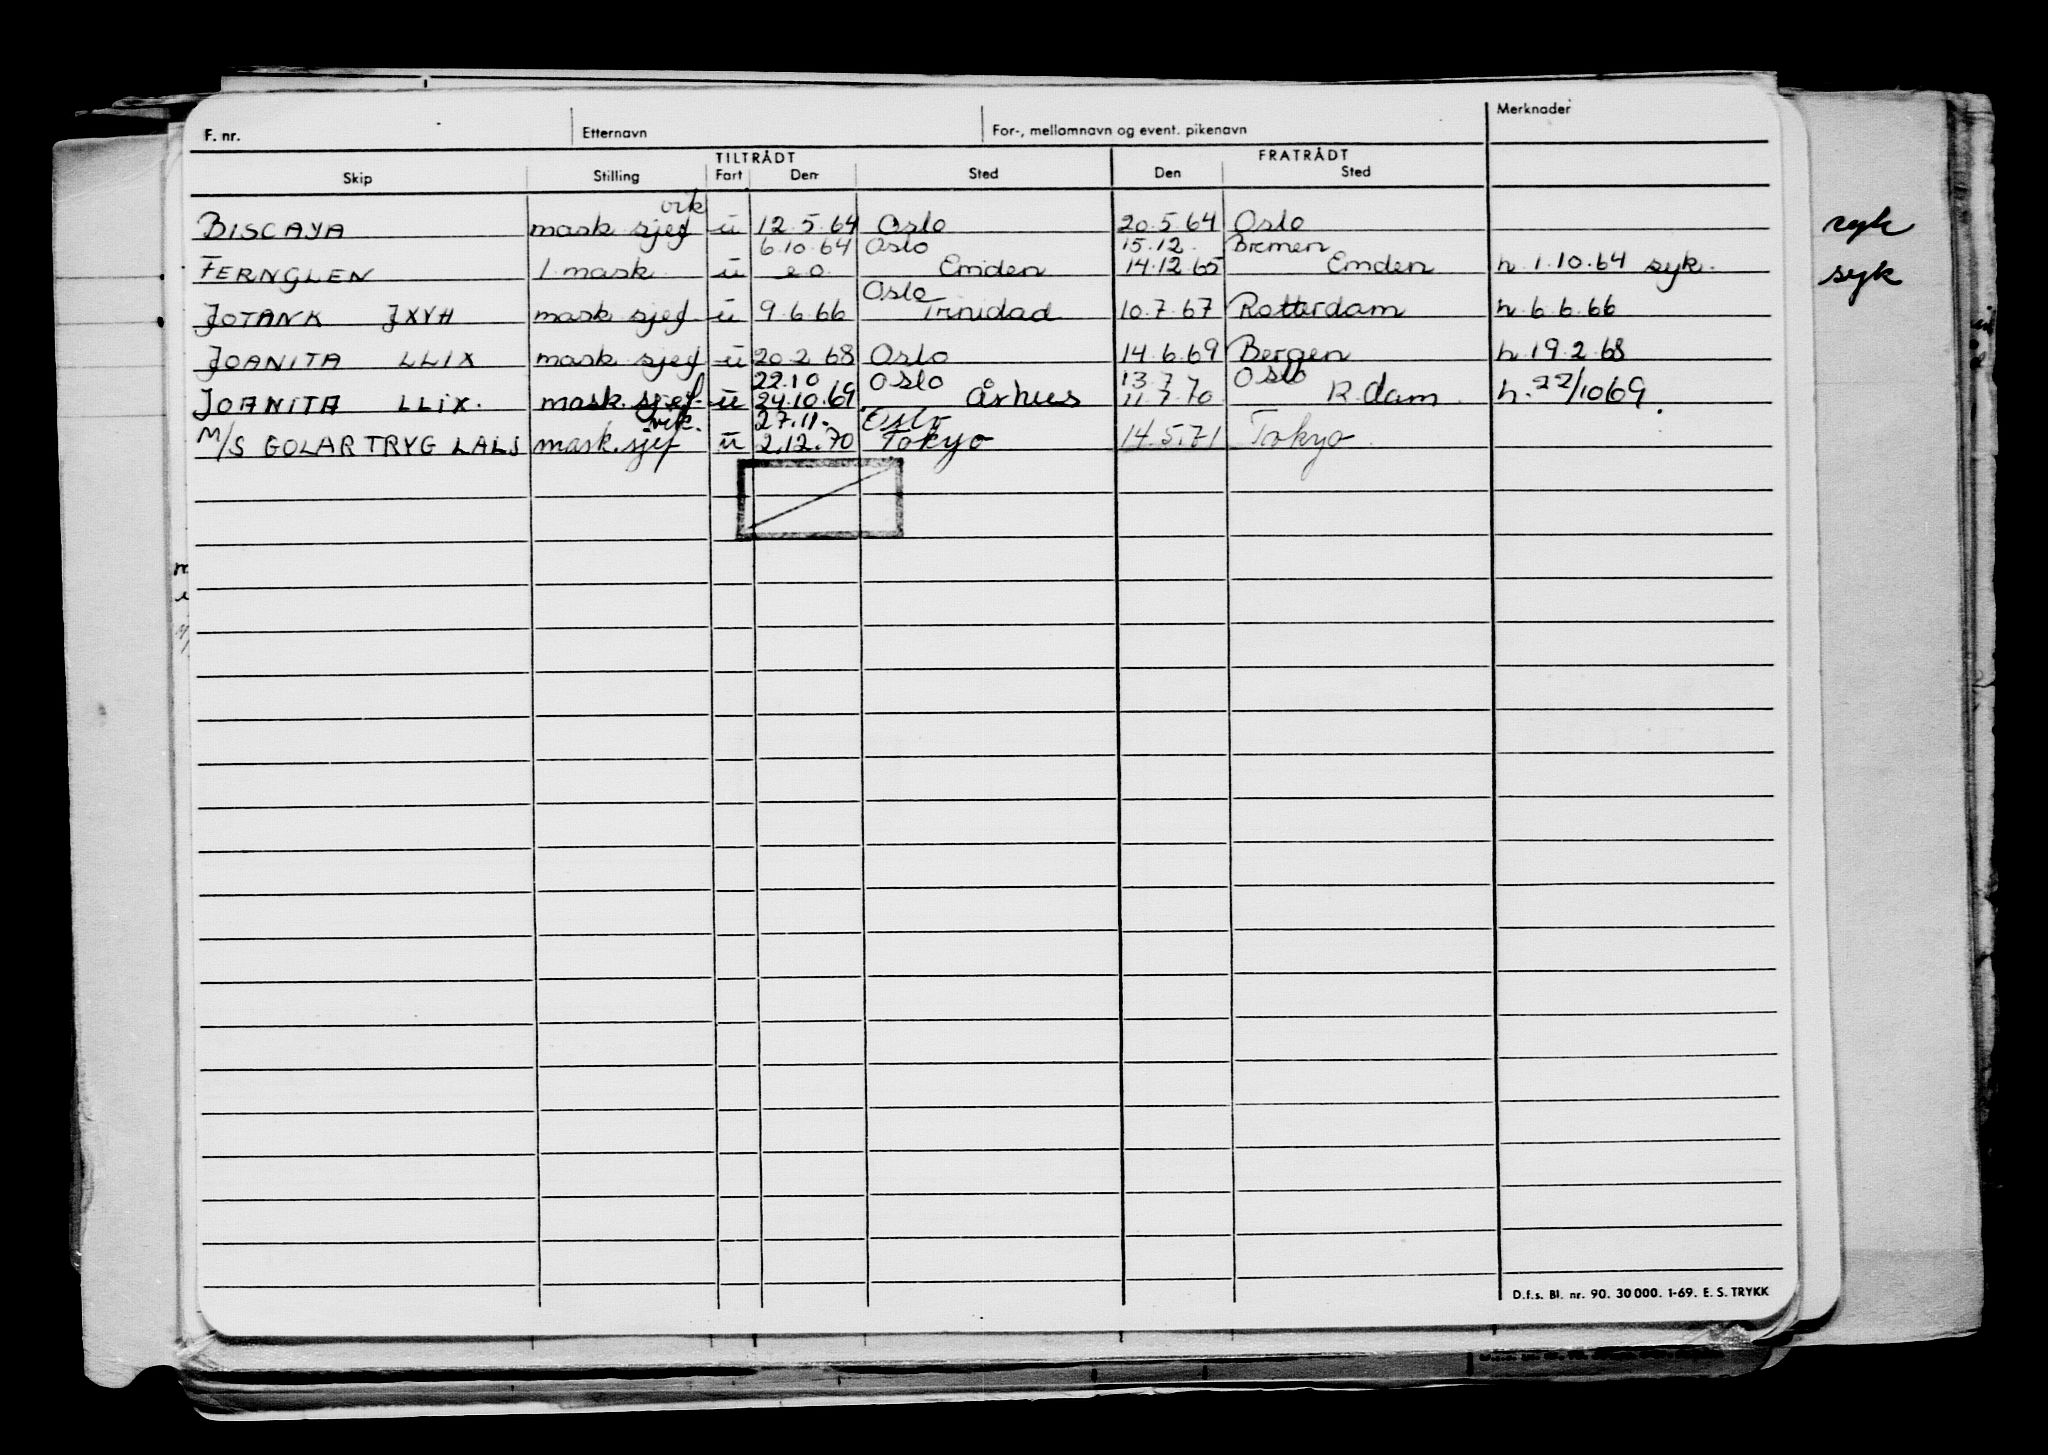 F. nr. Etternavn For-, mellomnavn og event. pikenavn Merknader
TILTRÅDT FRATRÅDT
Skip Stilling Fart Den Sted Den Sted
vik
BISCAYA mask sjef u 12.5.64 Oslo 20.5.64 Oslo
6.10.64 Oslo 15.12. Bremen
FERNGLEN 1 mask u s.o. Emden 14.12.65 Emden h 1.10.64 syk.
Oslo
JOTANK JXYH mask sjef u 9.6.66 Trinidad 10.7.67 Rotterdam h 6.6.66
JOANITA LLIX mask sjef u 20.2.68 Oslo 14.6.69 Bergen h 19.2.68
22.10 Oslo 13.7.70 Oslo
JOANITA LLIX. mask. sjef. u 24.10.69 Århus 11.7.70 R.dam h. 22/10 69.
vik. 27.11. Oslo
M/S GOLAR TRYG LALS mask. sjef u 2.12.70 Tokyo 14.5.71 Tokyo
syk
syk
D.f.s. Bl. nr. 90. 30 000. 1-69. E. S. TRYKK